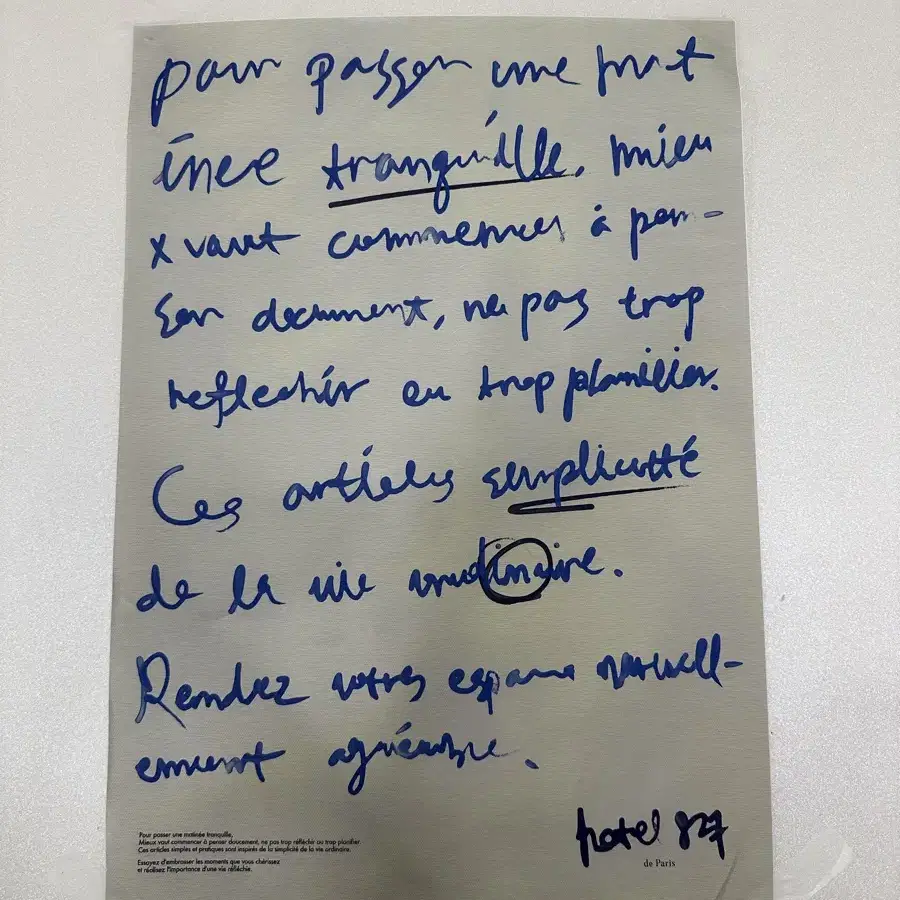 pour passer une mat
inee tranquille, mieu
x vaut commencer à pen-
ser doucement, ne pas trop
reflechir ou trop planifier.
Ces articles simplicité
de la vie ordinaire.
Rendez votres espace naturell-
ement agréable.
hotel 827
de Paris
Pour passer une matinée tranquille,
Mieux vaut commencer à penser doucement, ne pas trop réfléchir au trop planifier
Ces articles simples et pratiques sont inspirés de la simplicité de la vie ordinaire.
Essayez d'embrasser les moments que vous chérissez
et réalisez l'importance d'une vie réfléchie.